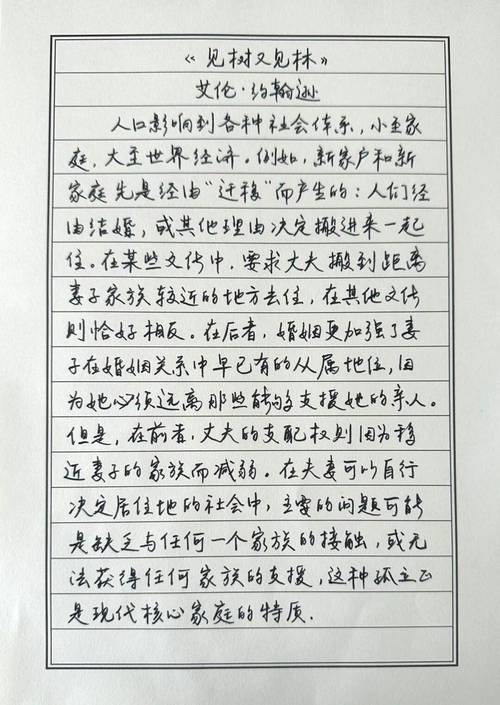 《见树又见林》
艾伦·约翰逊
人口影响到各种社会体系，小至家
庭，大至世界经济。例如，新家户和新
家庭先是经由“迁移”而产生的：人们经
由结婚，或其他理由决定搬进来一起
住。在某些文化中，要求丈夫搬到距离
妻子家族较近的地方去住，在其他文化
则恰好相反。在后者，婚姻更加强了妻
子在婚姻关系中早已有的从属地位，因
为她必须远离那些能够支援她的亲人。
但是，在前者，丈夫的支配权则因为移
近妻子的家族而减弱。在夫妻可以自行
决定居住地的社会中，主要的问题可能
是缺乏与任何一个家族的接触，或无
法获得任何家族的支援，这种孤立正
是现代核心家庭的特质.